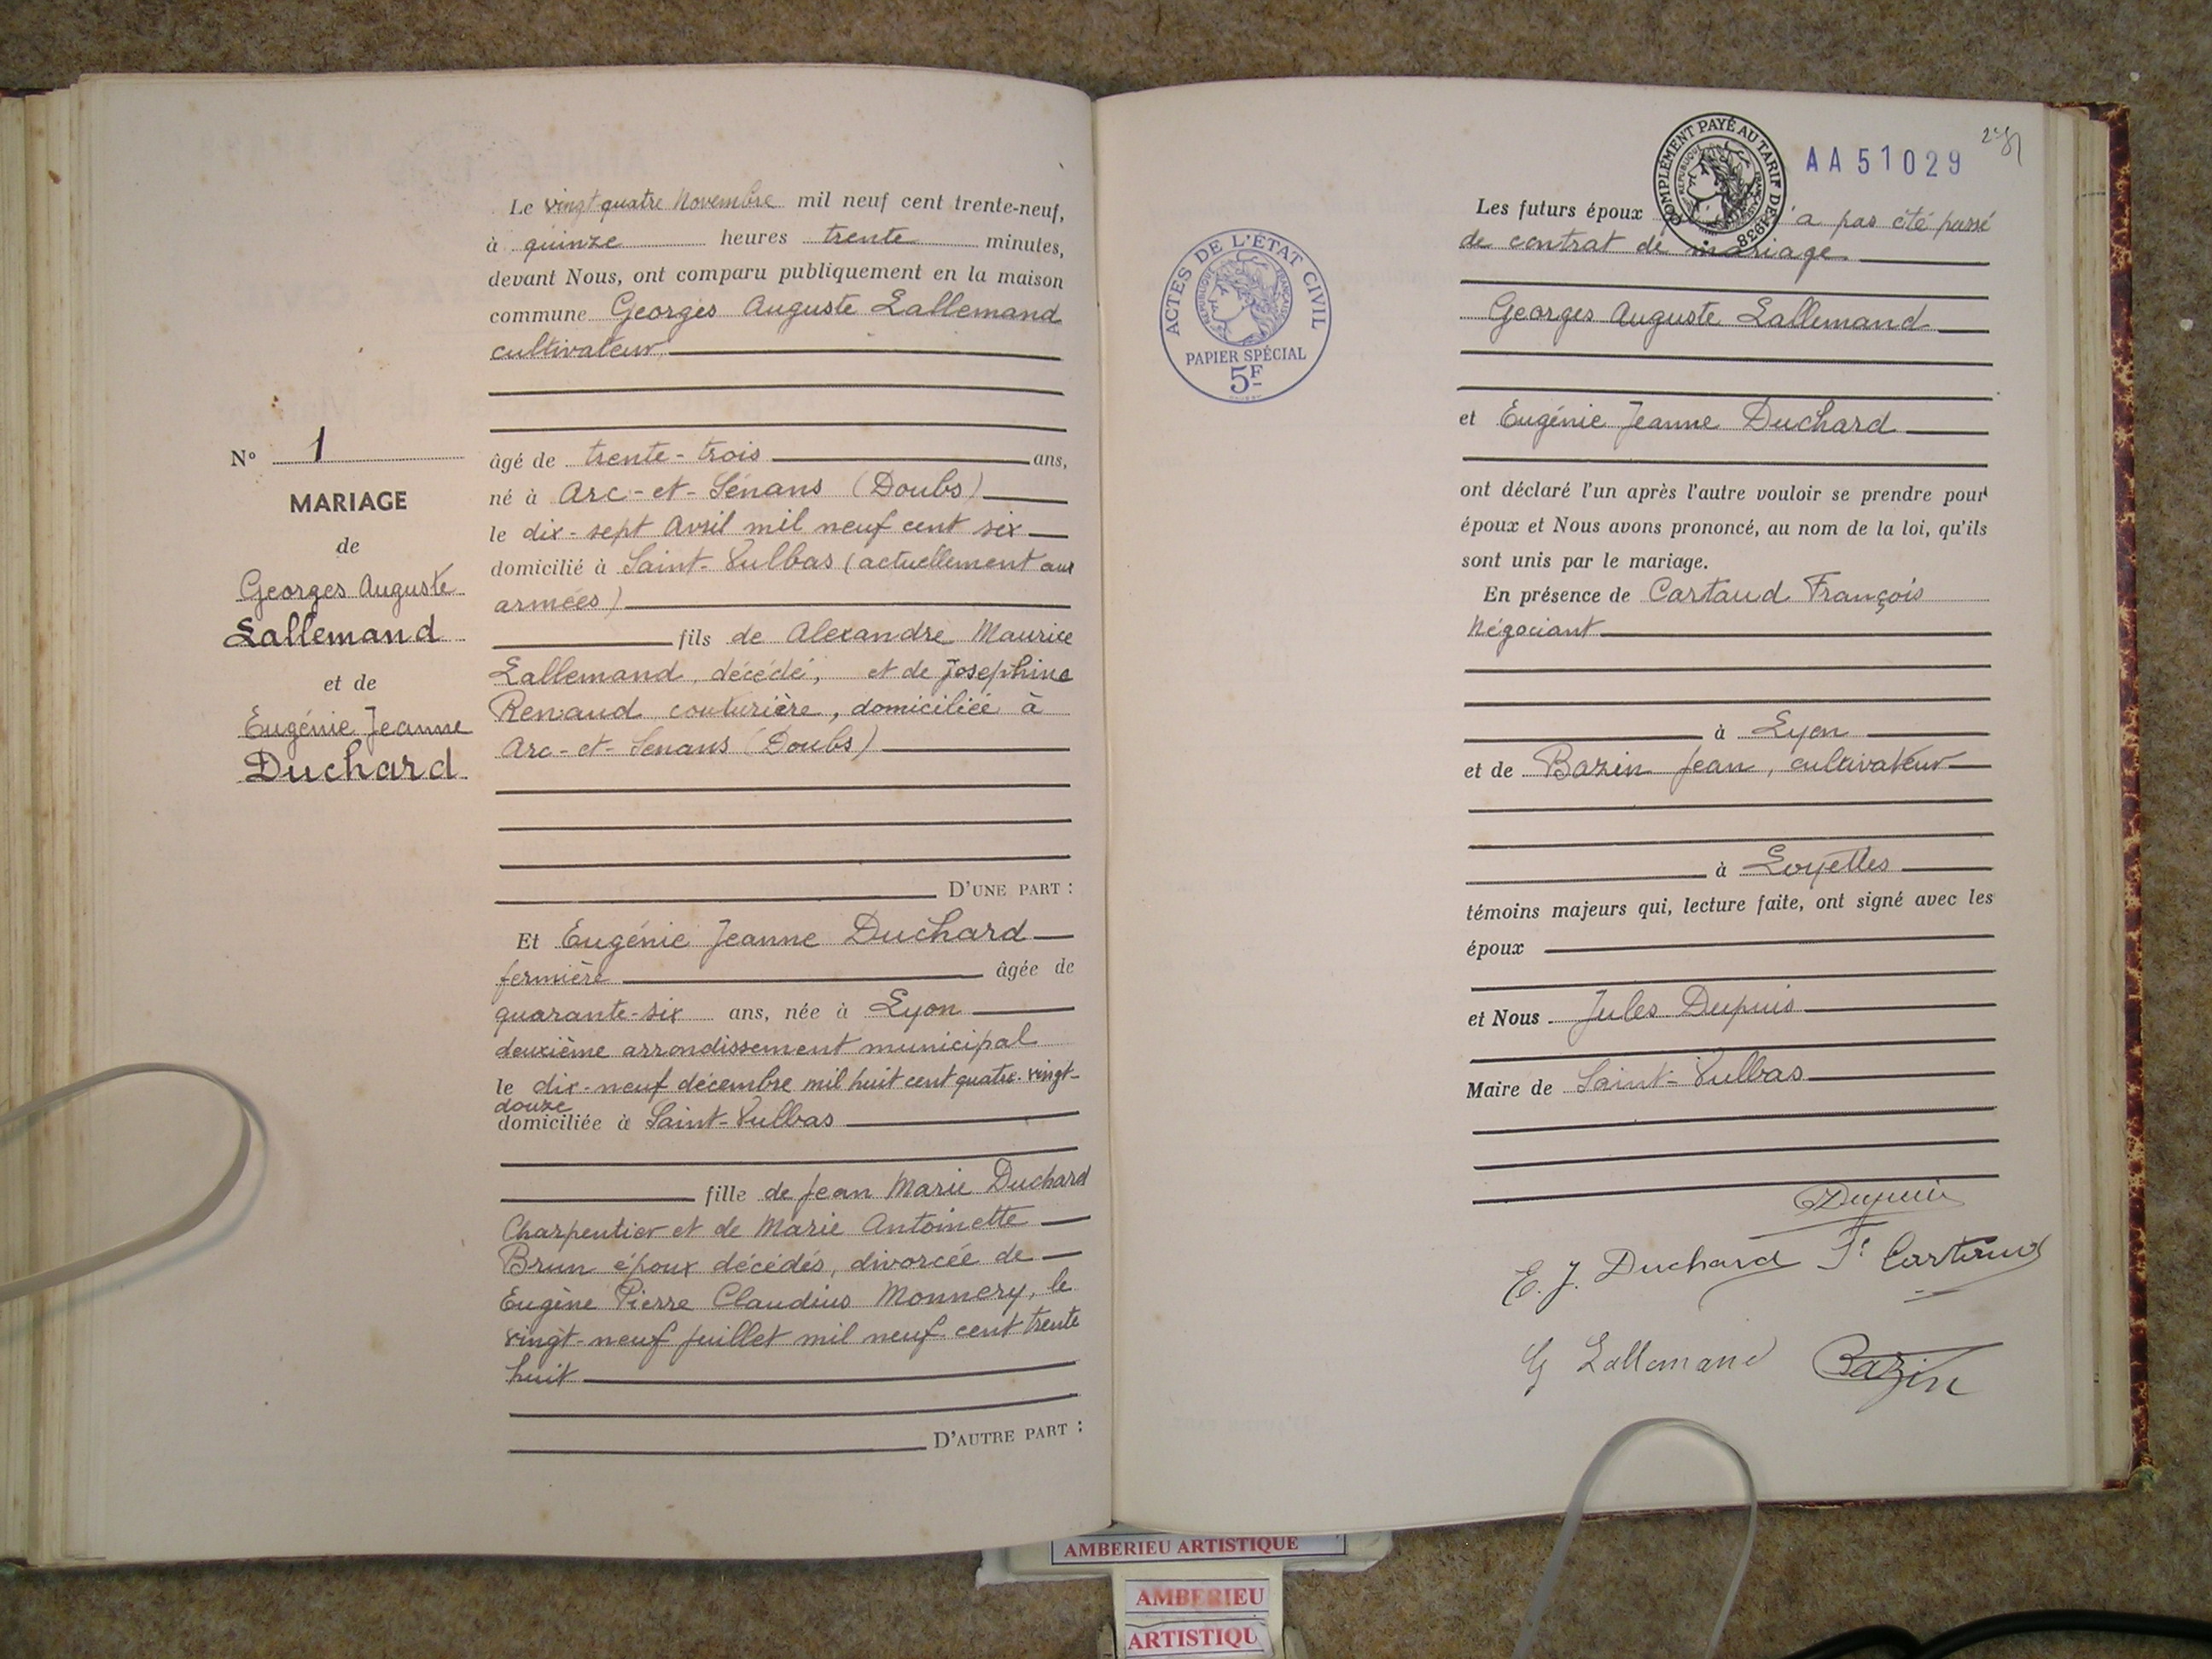 Le vingt quatre Novembre mil neuf cent trente-neuf,
à quinze heures trente minutes,
devant Nous, ont comparu publiquement en la maison
commune Georges Auguste Lallemand
cultivateur
N° 1
MARIAGE
de
Georges Auguste
Lallemand
et de
Eugénie Jeanne
Duchard
âgé de trente-trois ans,
né à Arc-et-Sénans (Doubs)
le dix-sept Avril mil neuf cent six
domicilié à Saint-Vulbas (actuellement aux
armées)
fils de Alexandre Maurice
Lallemand, décédé, et de Josephine
Renaud couturière, domiciliée à
Arc-et-Senans (Doubs)
D'UNE PART :
Et Eugénie Jeanne Duchard
fermière âgée de
quarante-six ans, née à Lyon
deuxième arrondissement municipal
le dix-neuf décembre mil huit cent quatre-vingt-
douze
domiciliée à Saint-Vulbas
fille de Jean Marie Duchard
Charpentier et de Marie Antoinette
Brun époux décédés, divorcée de
Eugène Pierre Claudius Monnery, le
vingt-neuf juillet mil neuf cent trente
huit
D'AUTRE PART :
COMPLÉMENT PAYÉ AU TARIF DE 1938
RÉPUBLIQUE FRANÇAISE
AA51029
ACTES DE L'ÉTAT CIVIL
RÉPUBLIQUE FRANÇAISE
PAPIER SPÉCIAL
5F
Les futurs époux 'a pas été passé
de contrat de mariage
Georges Auguste Lallemand
et Eugénie Jeanne Duchard
ont déclaré l'un après l'autre vouloir se prendre pour
époux et Nous avons prononcé, au nom de la loi, qu'ils
sont unis par le mariage.
En présence de Cartaud François
Négociant
à Lyon
et de Bazin Jean, cultivateur
à Loyettes
témoins majeurs qui, lecture faite, ont signé avec les
époux
et Nous Jules Dupuis
Maire de Saint-Vulbas
Dupuis
E. J. Duchard Fs Cartaud
G Lallemand Bazin
AMBERIEU ARTISTIQUE
AMBERIEU
ARTISTIQU